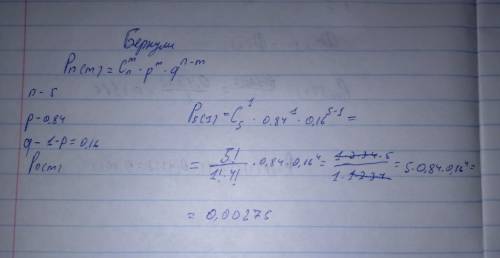 Бернули
Pn(m) = C_n^m · p^m · q^{n-m}
n - 5
p - 0,84
q - 1-p = 0,16
P₅(1) = C_5^1 · 0,84^1 · 0,16^{5-1} =
= 5!/(1!·4!) · 0,84 · 0,16^4 = (1·2·3·4·5)/(1·1·2·3·4) = 5·0,84·0,16^4 =
= 0,00275